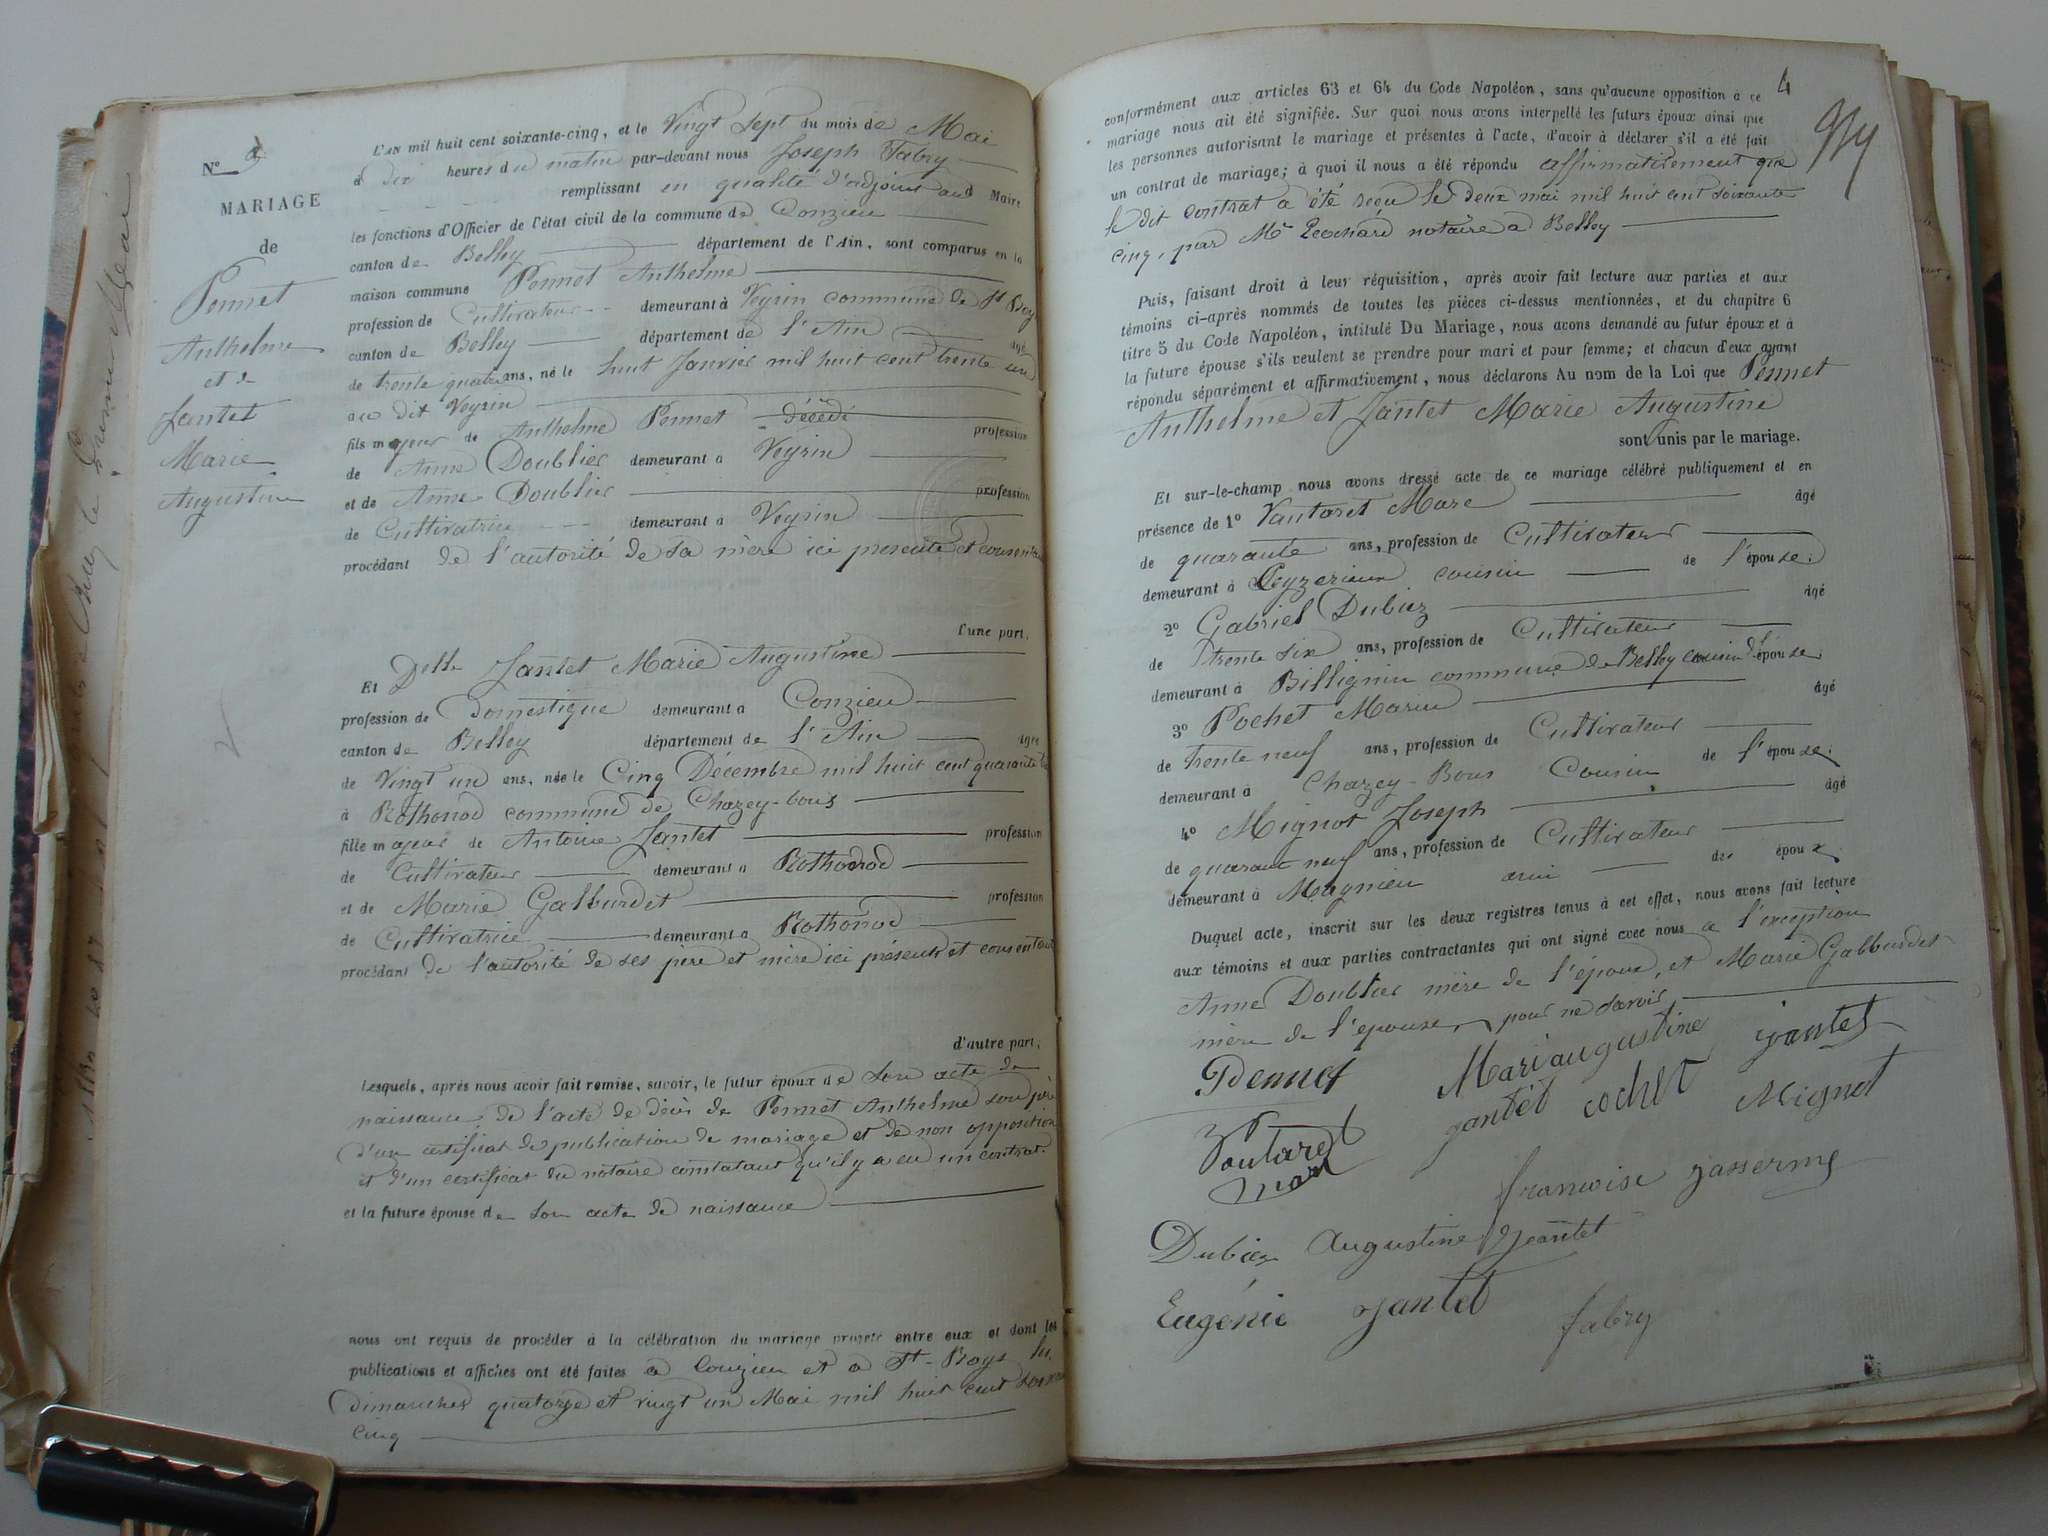 N°
MARIAGE
de
Pennet
Anthelme
et de
Jantet
Marie
Augustine
L'AN mil huit cent soixante-cinq, et le Vingt Sept du mois de Mai
à dix heures du matin par-devant nous Joseph Fabry
remplissant en qualité d'adjoint au Maire
les fonctions d'Officier de l'état civil de la commune de Conzieu
canton de Belley département de l'Ain, sont comparus en la
maison commune Pennet Anthelme
profession de Cultivateur demeurant à Veyrin commune de St Boy
canton de Belley département de l'Ain âgé
de trente quatre ans, né le huit Janvier mil huit cent trente un
au dit Veyrin
fils majeur de Anthelme Pennet décédé profession
de Anne Doublier demeurant à Veyrin
et de Anne Doublier profession
de Cultivatrice demeurant à Veyrin
procédant de l'autorité de sa mère ici présente et consentante
l'une part,
Et Delle Jantet Marie Augustine
profession de Domestique demeurant à Conzieu
canton de Belley département de l'Ain âgée
de Vingt un ans, née le Cinq Décembre mil huit cent quarante
à Rothonod commune de Chazey-bons
fille majeur de Antoine Jantet profession
de Cultivateur demeurant à Rothonod
et de Marie Galburdet profession
de Cultivatrice demeurant à Rothonod
procédant de l'autorité de ses père et mère ici présents et consentant
d'autre part;
Lesquels, après nous avoir fait remise, savoir, le futur époux de son acte de
naissance, de l'acte de décès de Pennet Anthelme son père
d'un certificat de publication de mariage et de non opposition
et d'un certificat du notaire constatant qu'il y a eu un contrat.
et la future épouse de son acte de naissance
nous ont requis de procéder à la célébration du mariage projeté entre eux et dont les
publications et affiches ont été faites à Conzieu et à St-Boys les
dimanches quatorze et vingt un Mai mil huit cent soixante
cinq
4
conformément aux articles 63 et 64 du Code Napoléon, sans qu'aucune opposition à ce
mariage nous ait été signifiée. Sur quoi nous avons interpellé les futurs époux ainsi que
les personnes autorisant le mariage et présentes à l'acte, d'avoir à déclarer s'il a été fait
un contrat de mariage; à quoi il nous a été répondu affirmativement que
le dit contrat a été reçu le deux mai mil huit cent soixante
cinq, par Me notaire à Belley
Puis, faisant droit à leur réquisition, après avoir fait lecture aux parties et aux
témoins ci-après nommés de toutes les pièces ci-dessus mentionnées, et du chapitre 6
titre 5 du Code Napoléon, intitulé Du Mariage, nous avons demandé au futur époux et à
la future épouse s'ils veulent se prendre pour mari et pour femme; et chacun d'eux ayant
répondu séparément et affirmativement, nous déclarons Au nom de la Loi que Pennet
Anthelme et Jantet Marie Augustine
sont unis par le mariage.
Et sur-le-champ nous avons dressé acte de ce mariage célébré publiquement et en
présence de 1° Vautaret Marc âgé
de quarante ans, profession de Cultivateur
demeurant à Peyzerieux cousin de l'épouse.
2° Gabriel Dubiez âgé
de trente six ans, profession de Cultivateur
demeurant à Billignin commune de Belley cousin de l'épouse
3° Pochet Marin âgé
de trente neuf ans, profession de Cultivateur
demeurant à Chazey-Bons Cousin de l'épouse.
4° Mignot Joseph âgé
de quarante neuf ans, profession de Cultivateur
demeurant à Magnieu ami de époux
Duquel acte, inscrit sur les deux registres tenus à cet effet, nous avons fait lecture
aux témoins et aux parties contractantes qui ont signé avec nous à l'exception
Anne Doublier mère de l'époux, et Marie Galburdet
mère de l'épouse, pour ne savoir
Pennet Mariaugustine jantet
jantet cochet Mignot
Vautaret
marc
francoise
Dubiez Augustine Jeantet
Eugénie jantet
fabry